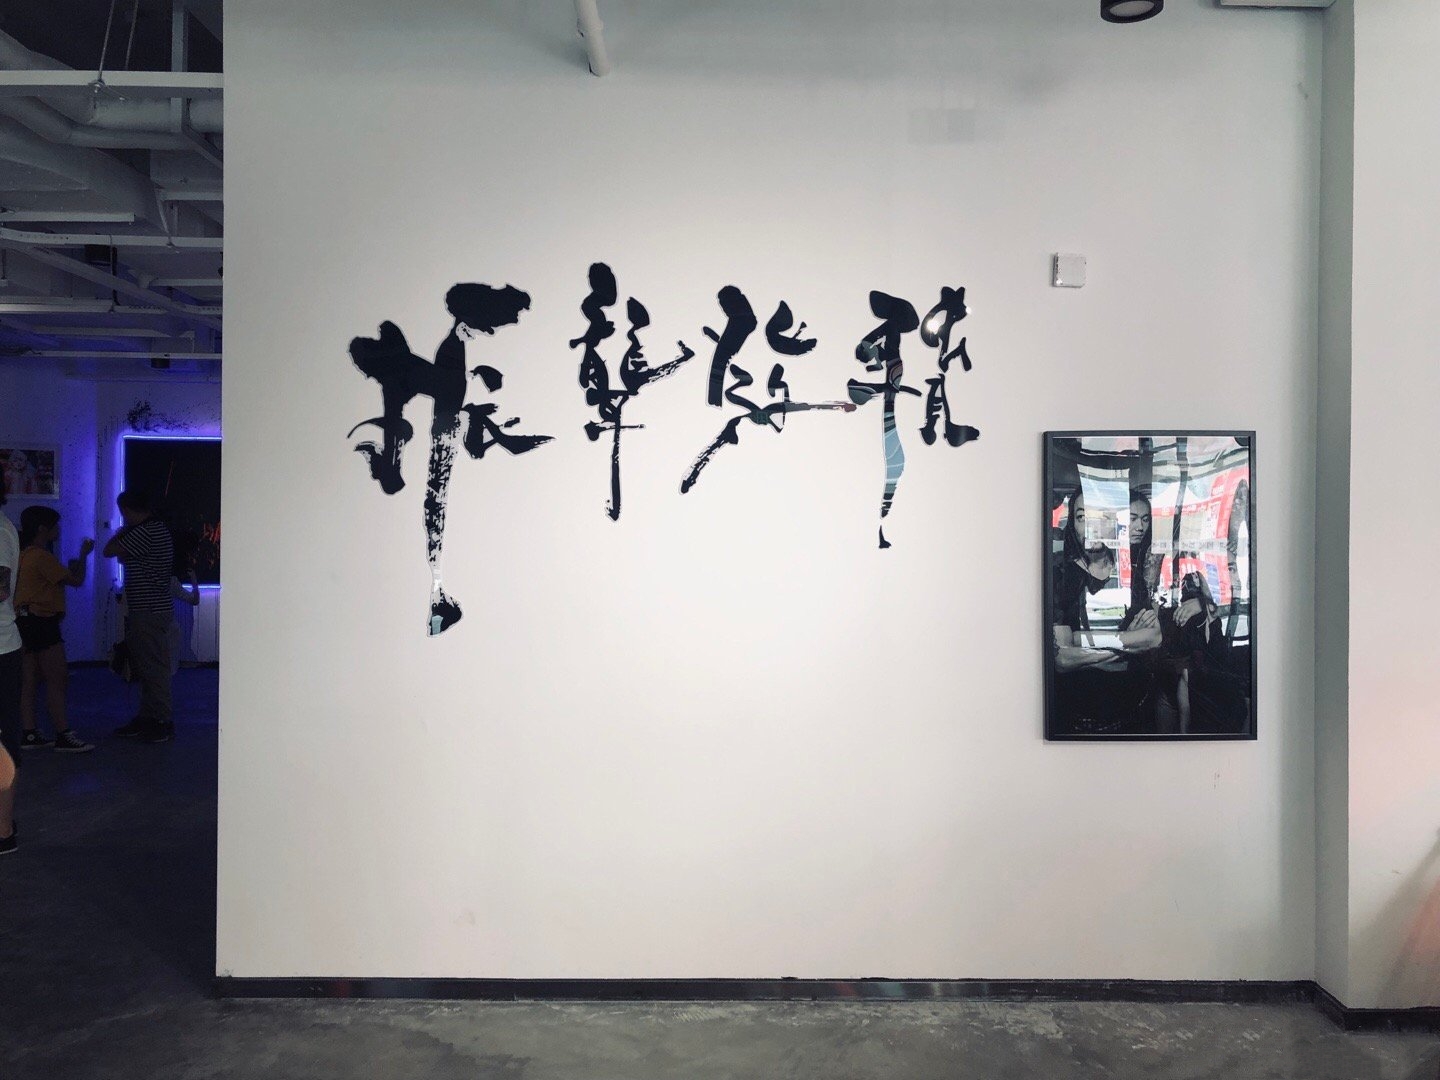 振聾發聵